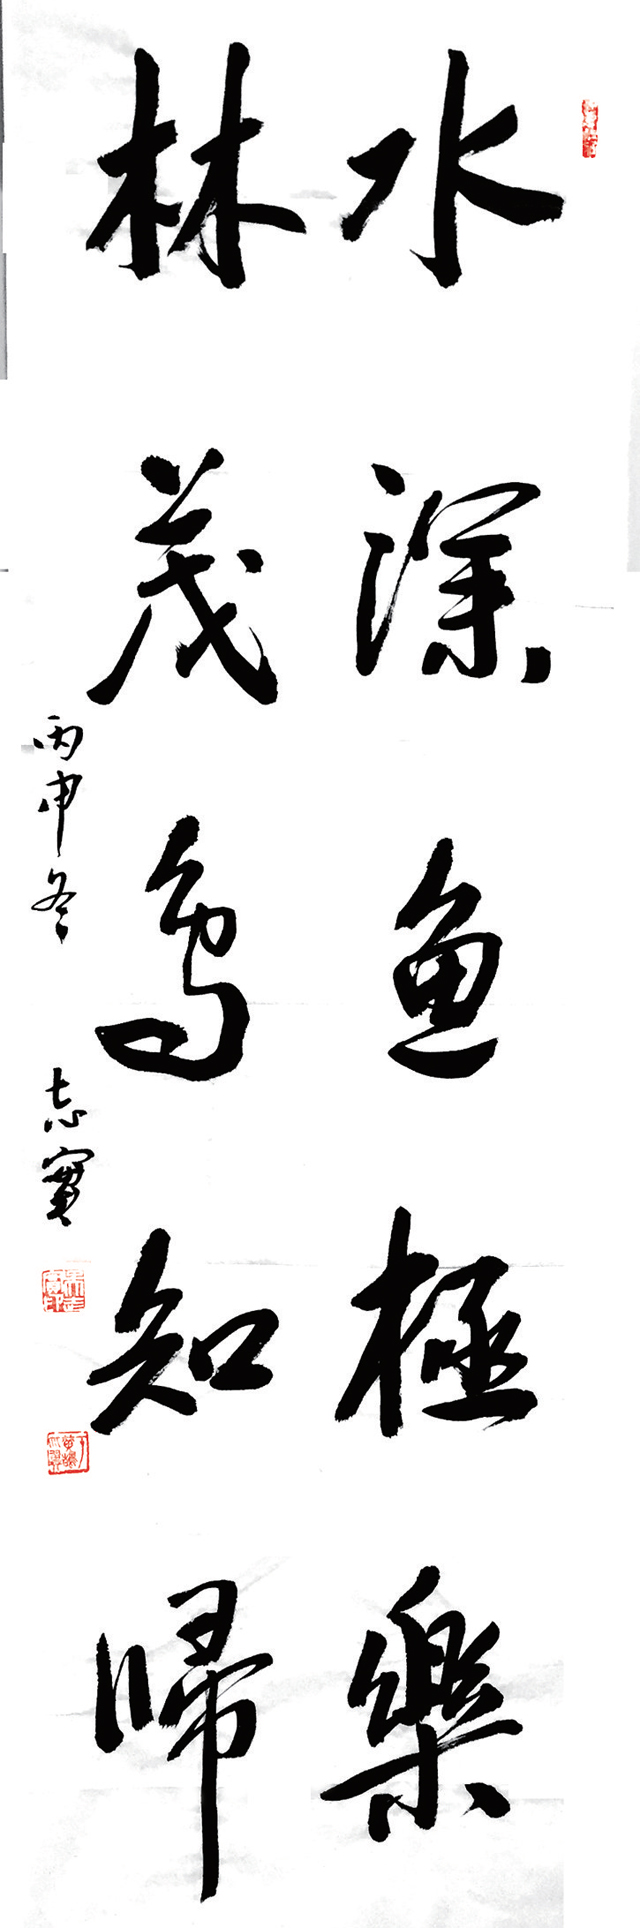 水深魚極樂
林茂鳥知歸
丙申冬 志實